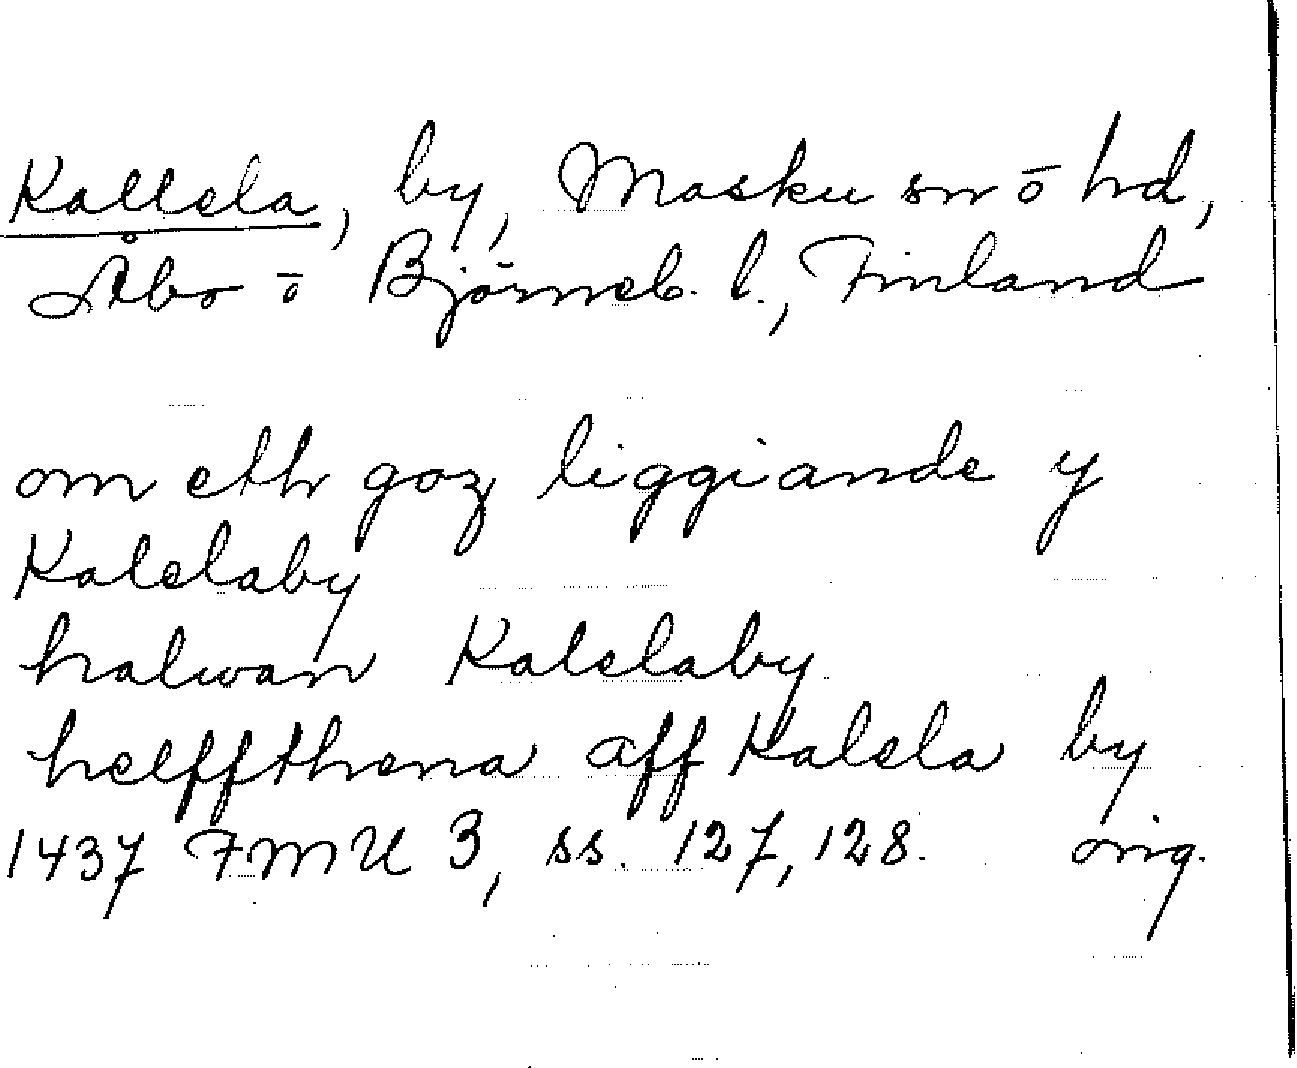 Kallela, by, Masku sn ō hd,
Åbo ō Björneb. l., Finland
om eth goz liggiande y
Kalelaby
halwan Kalelaby
helffthena aff Kalela by
1437 FMU 3, ss. 127, 128. orig.